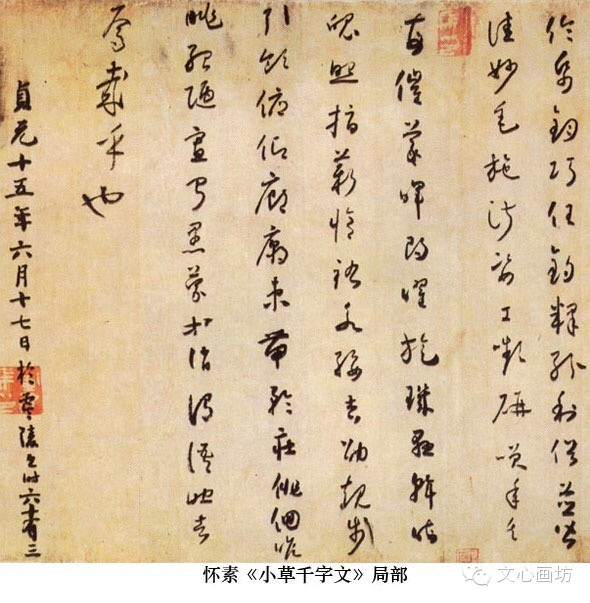 倫紙鈞巧任釣釋紛利俗並皆
佳妙毛施淑姿工顰妍笑年矢
每催羲暉朗曜旋璣懸斡晦
魄照指薪脩祜永綏吉劭矩步
引領俯仰廊廟束帶矜莊俳佪瞻
眺孤陋寡聞愚蒙等誚謂語助者
焉哉乎也
貞元十五年六月十七日於零陵書時六十有三
怀素《小草千字文》局部
文心画坊